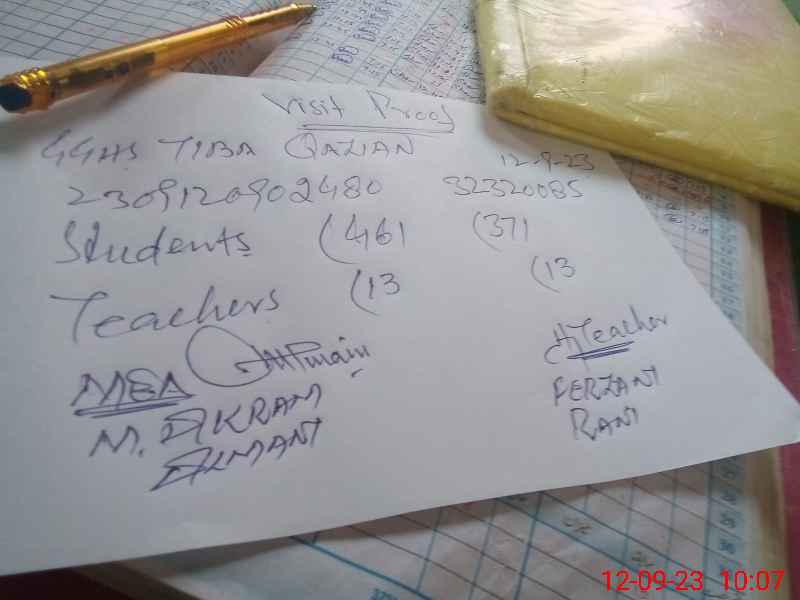 Visit Proof
GGHS TIBA QAZIAN
12-9-23
2309120902480 32320085
Students (461 (371
Teachers (13 (13
MEA
H/Teacher
M. AKRAM
ALMANI
FERZANI
RANI
12-09-23 10:07